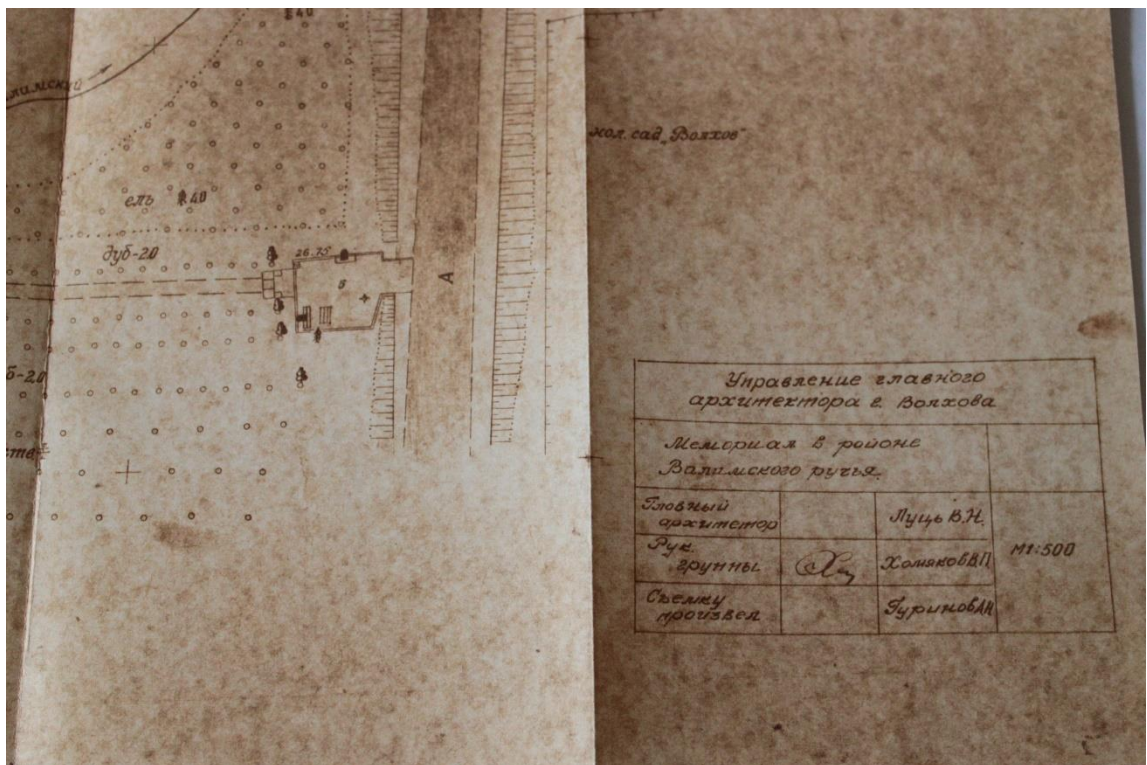 40
ель 40
дуб-20
26.75
А
кол. сад „Волхов"
Управление главного
архитектора г. Волхова
Мемориал в районе
Валимского ручья.
Главный
архитектор
Луць В.Н.
Рук.
группы
Хомяков В.П
Съемку
произвел
Гуринов А.Н
М1:500